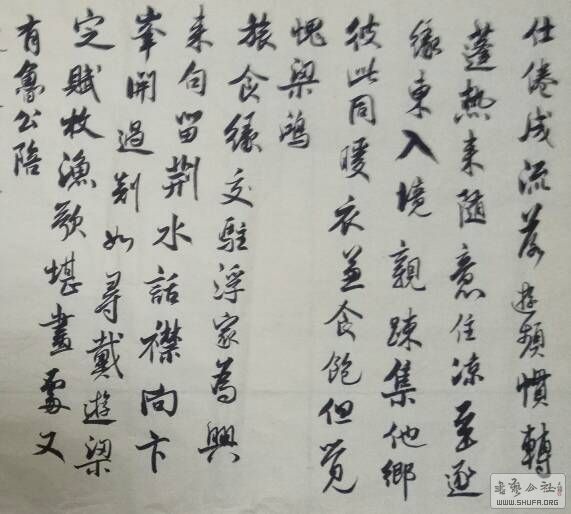 仕倦成流落遊頻慣轉
蓬热来隨意住凉至逐
緣東入境親疎集他鄉
彼此同暖衣兼食飽但觉
愧梁鴻
旅食緣交駐浮家為興
来句留荆水話襟向卞
峯開過剡如尋戴遊梁
定賦枚漁歌堪畫處又
有魯公陪
书艺公社
WWW.SHUFA.ORG